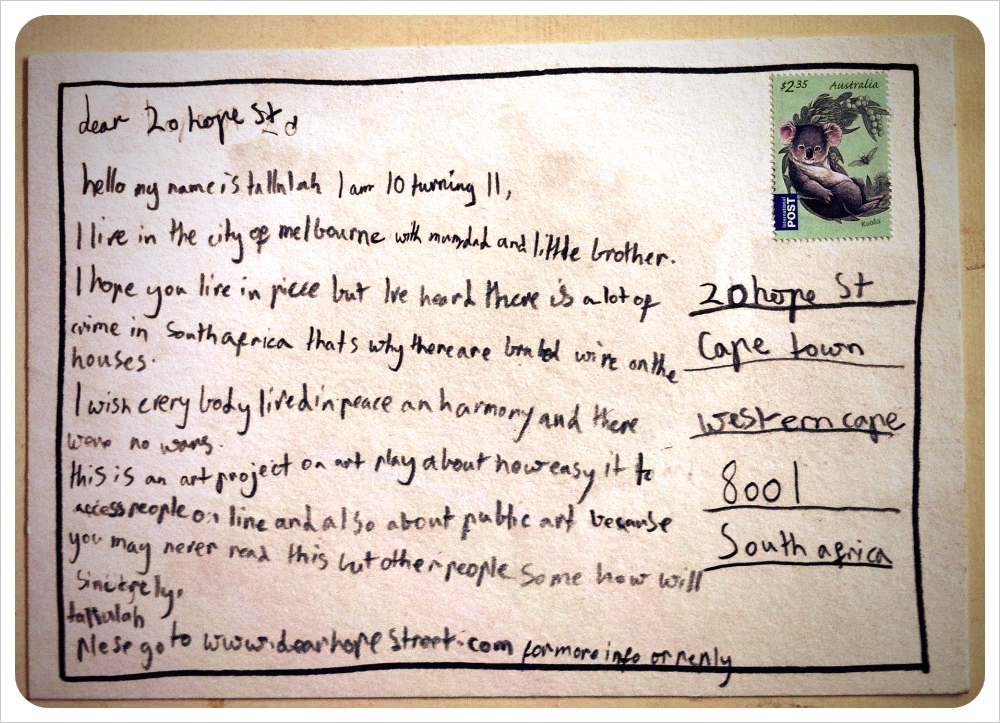 dear 20 hope St
hello my name is tallulah I am 10 turning 11,
I live in the city of melbourne with mum dad and little brother.
I hope you live in piece but Ive heard there is a lot of
crime in South africa thats why there are wire on the
houses.
I wish every body lived in peace an harmony and there
were no wars.
this is an art project on art play about how easy it to
access people on line and also about public art because
you may never read this but other people some how will
Sincerely,
tallulah
Plese go to www.dearhopestreet.com for more info or reply
$2.35 Australia
International
POST
Koala
20 hope St
Cape town
western cape
8001
South africa